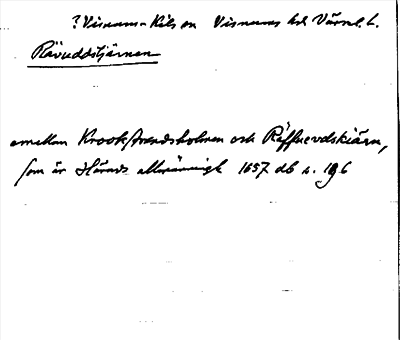 ?Visnums-Kils sn Visnums hd Värml. l.
Rävuddstjärnen
emellan Krookstrandsholmen och Räffuevdskiärn,
som är Härads allmännigh 1657 db s. 196